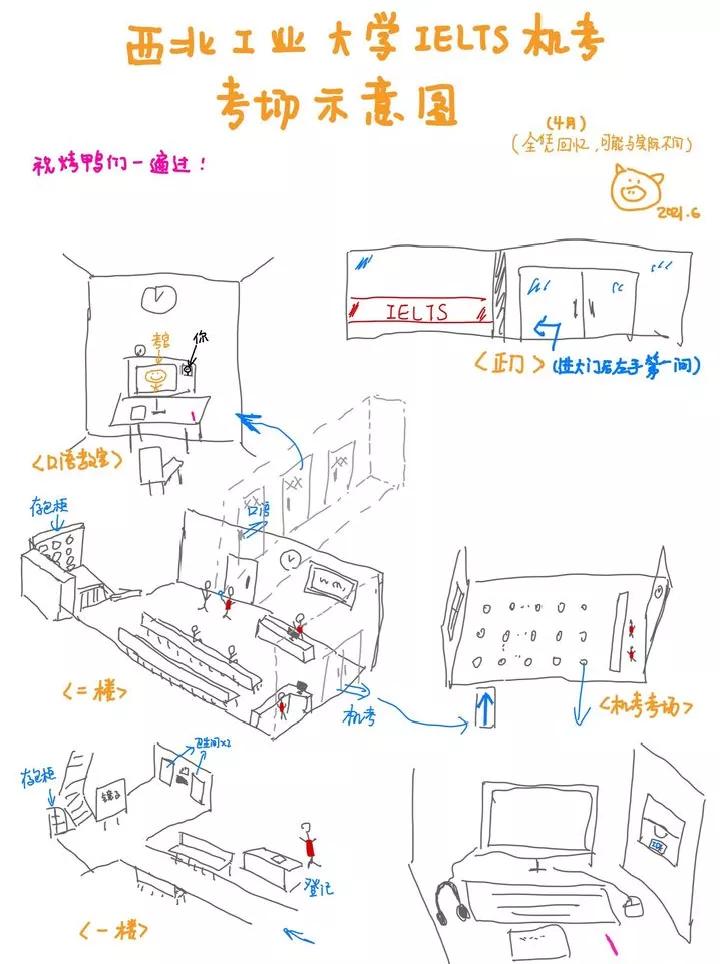 西北工业大学IELTS机考
考场示意图
(4月)
(全凭回忆,可能与实际不同)
祝烤鸭们一遍过!
2021.6
IELTS
<正门>(进大门后左手第一间)
考官
你
<口语教室>
XX
XX
XX
口语
存包柜
<二楼>
机考
<机考考场>
存包柜
卫生间x2
登记
<一楼>